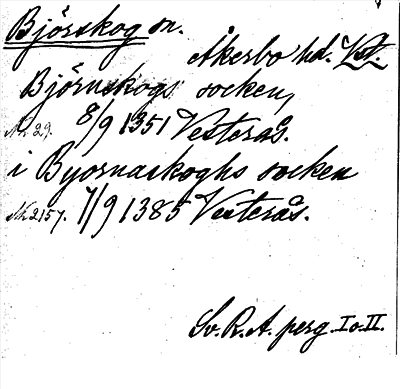 Björskog sn.
Åkerbo hd. Vstm.
Björnskogs socken,
Nr. 29. 8/9 1351 Vesterås.
i Byornaskoghs socken
Nr. 2157. 7/9 1385 Vesterås.
Sv. R. A. perg. I o. II.